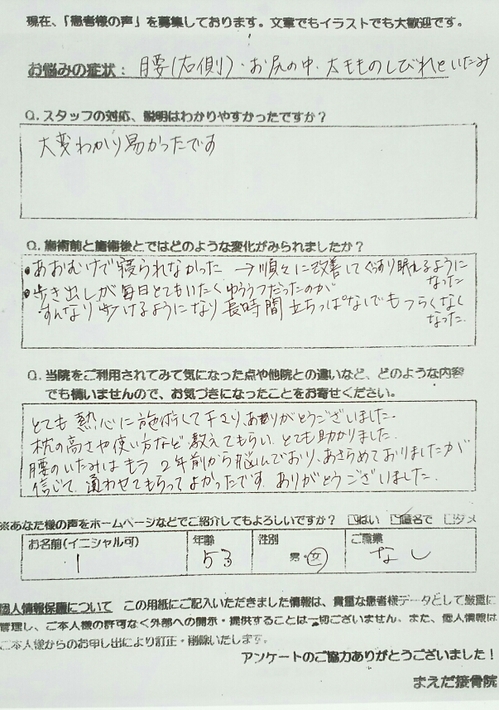 現在、「患者様の声」を募集しております。文章でもイラストでも大歓迎です。
お悩みの症状： 腰(右側)・お尻の中・太もものしびれといたみ
Q.スタッフの対応、説明はわかりやすかったですか？
大変わかり易かったです
Q.施術前と施術後とではどのような変化がみられましたか？
・あおむけで寝られなかった → 順々に改善してぐっすり眠れるように
なった
・歩き出しが毎日とてもいたくゆううつだったのが
すんなり歩けるようになり長時間立ちっぱなしでもつらくなく
なった.
Q.当院をご利用されてみて気になった点や他院との違いなど、どのような内容
でも構いませんので、お気づきになったことをお寄せください。
とても熱心に施術して下さり、ありがとうございました.
枕の高さや使い方など教えてもらい、とても助かりました.
腰のいたみはもう2年前から悩んでおり、あきらめておりましたが
信じて、通わせてもらってよかったです。ありがとうございました.
※あなた様の声をホームページなどでご紹介してもよろしいですか？ □はい □匿名で □ダメ
お名前(イニシャル可) 年齢 性別 ご職業
I 53 男・女 なし
個人情報保護について この用紙にご記入いただきました情報は、貴重な患者様データとして厳重に
管理し、ご本人様の許可なく外部への開示・提供することは一切ございません、また、個人情報は
ご本人様からのお申し出により訂正・削除いたします。
アンケートのご協力ありがとうございました！
まえだ接骨院